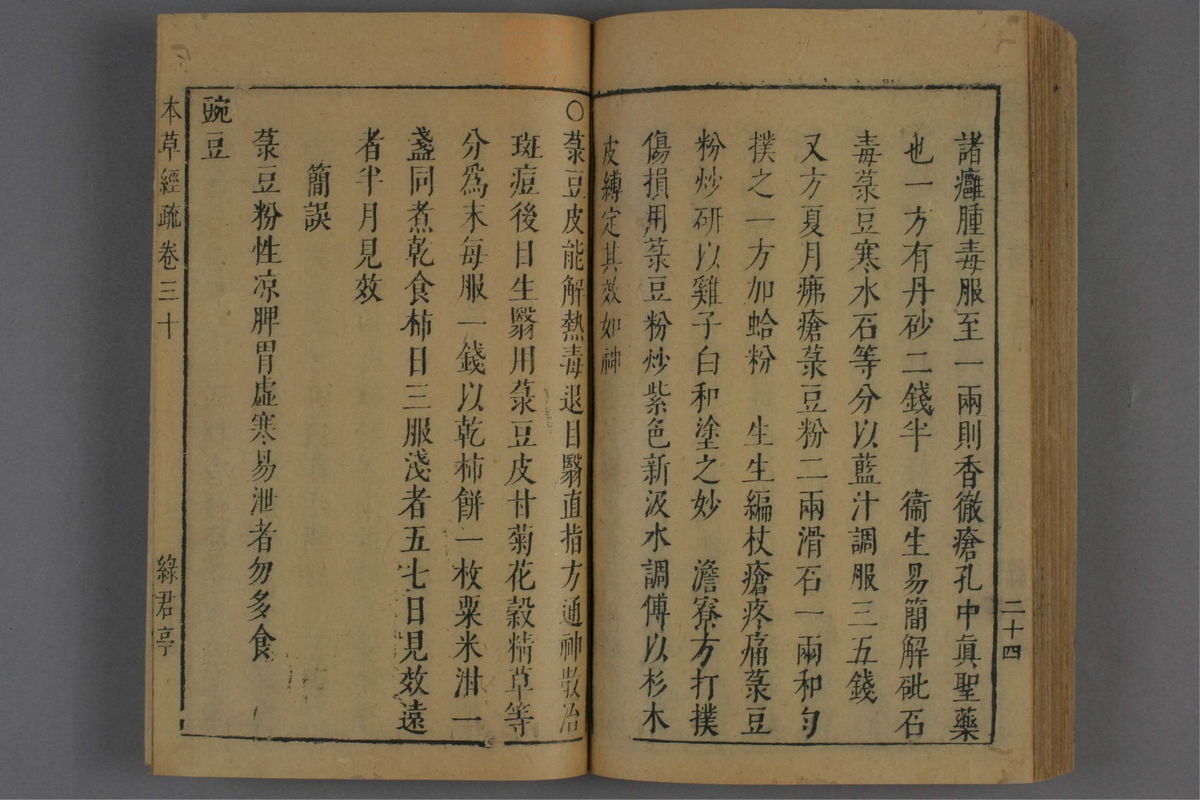 諸癰腫毒服至一兩則香徹瘡孔中眞聖藥
也一方有丹砂二錢半　衞生易簡解砒石
毒菉豆寒水石等分以藍汁調服三五錢
又方夏月疿瘡菉豆粉二兩滑石一兩和勻
撲之一方加蛤粉　生生編杖瘡疼痛菉豆
粉炒研以雞子白和塗之妙　澹寮方打撲
傷損用菉豆粉炒紫色新汲水調傅以杉木
皮縛定其效如神
二十四
〇菉豆皮能解熱毒退目翳直指方通神散治
斑痘後目生翳用菉豆皮甘菊花穀精草等
分爲末每服一錢以乾柿餅一枚粟米泔一
盞同煮乾食柿日三服淺者五七日見效遠
者半月見效
簡誤
菉豆粉性凉脾胃虛寒易泄者勿多食
豌豆
本草經疏卷三十
綠君亭